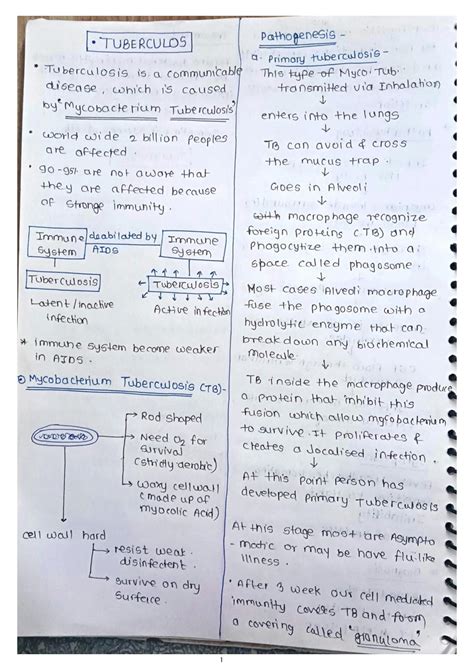 • TUBERCULOS
• Tuberculosis is a communicable
disease, which is caused
by "Mycobacterium Tuberculosis"
• world wide 2 billion peoples
are affected.
• 90-95% are not aware that
they are affected because
of stronge immunity.
Immune
System
dsabilated by
AIDS
Immune
System
Tuberculosis
Tuberculosis
Latent/Inactive
infection
Active infection
* immune system become weaker
in AIDS.
Mycobacterium Tuberculosis (TB)-
Rod shaped
Need O2 for
survival
(strictly aerobic)
waxy cell wall
(made up of
myocolic Acid)
cell wall hard
resist weak
disinfectent.
survive on dry
surfeice.
Pathogenesis -
a. Primary tuberculosis-
This type of Myco.Tub.
transmitted via Inhalation
↓
enters into the lungs
↓
TB can avoid & cross
the mucus trap.
↓
Goes in Alveoli
↓
with macrophage recognize
foreign proteins (TB) and
Phagocytize them into a
space called phagosome.
↓
Most cases Alveoli macrophage
fuse the phagosome with a
hydrolytic enzyme that can
break down any biochemical
molecule.
↓
TB inside the macrophage produce
a protein that inhibit this
fusion which allow mycobacterium
to survive. It proliferates &
creates a localised infection.
↓
At this point person has
developed primary Tuberculosis
At this stage most are Asympto
-matic or may be have flu-like
illness.
• After 3 week our cell mediated
immunity covers TB and form
a covering called "granuloma"
1